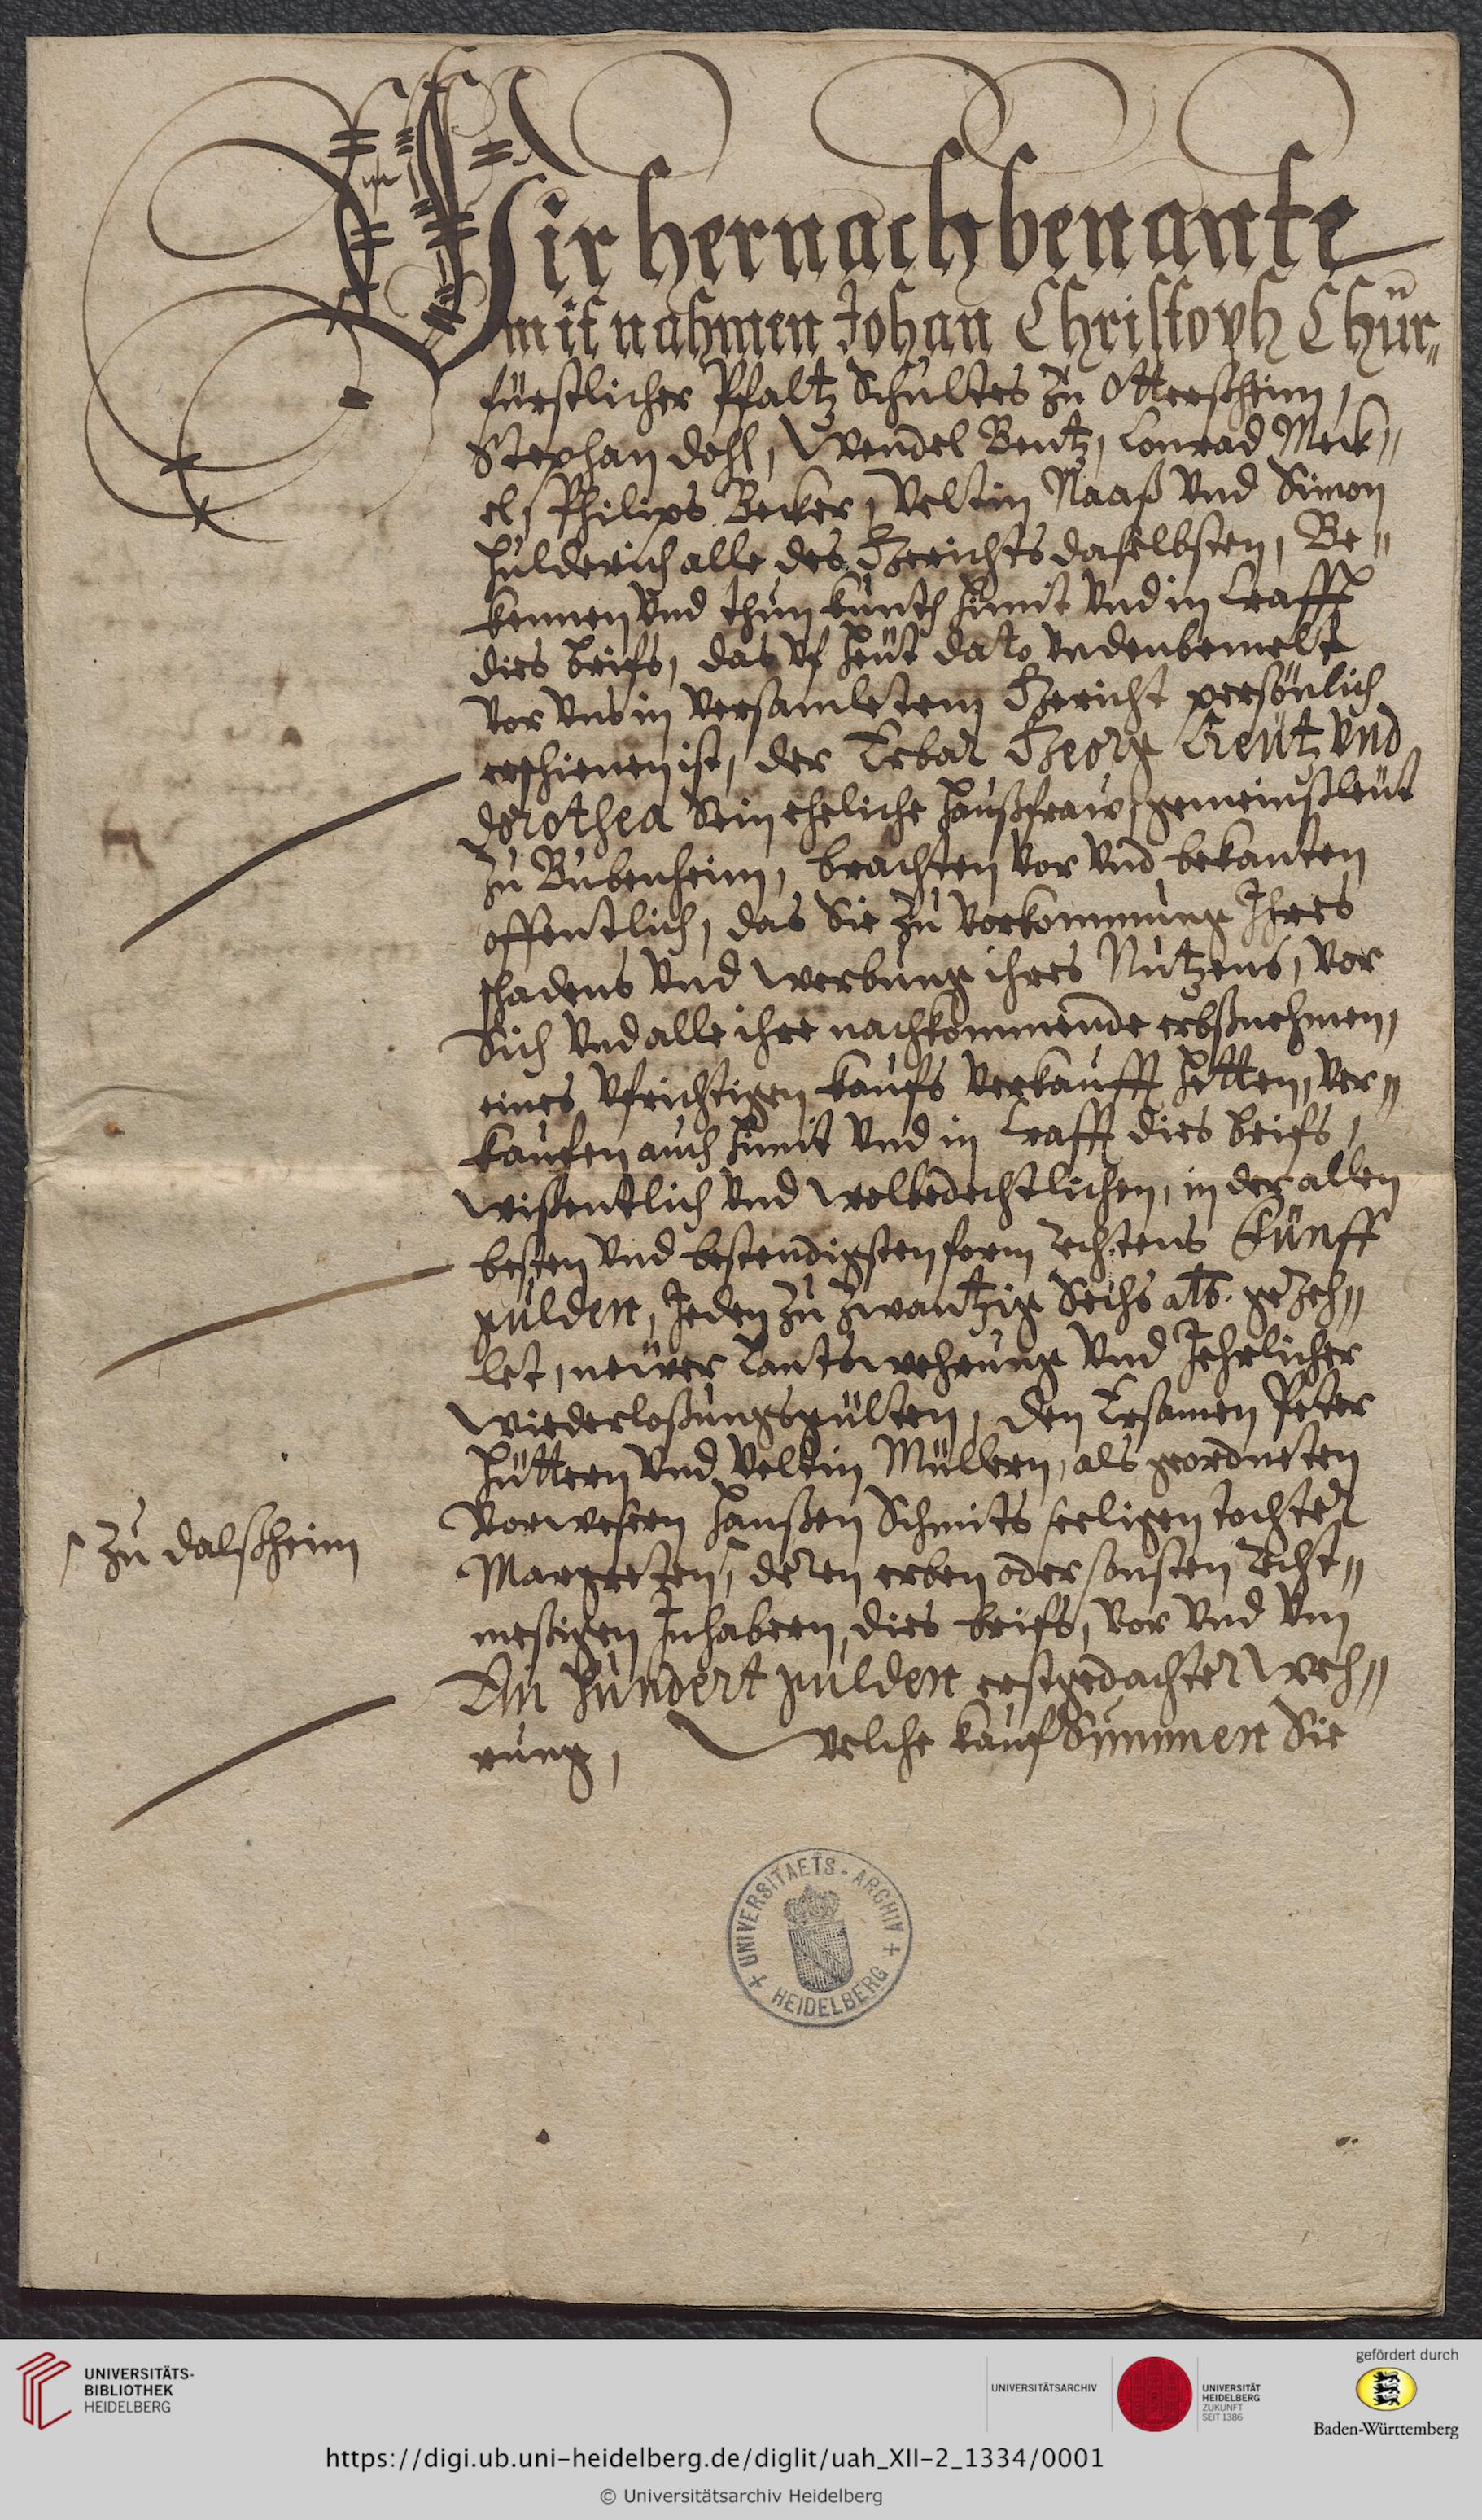 Wir hernach benante
mit nahmen Johan Christoph Chur„
fürstlicher Pfaltz Schultes zu Ottersheim,
Stephan dohl, Wendel Bentz, Conrad Meck„
el, Philips Becker, Veltin Naaß vnd Simon
Hulderich alle des Gerichts daselbsten, Be„
kennen vnd thun kunth himit vnd in Crafft
dies briefs, das vf heut dato vndenbemelt
vor vns in versamletem Gericht persönlich
erschienen ist, der Erbar Georg Creutz vnd
dorothea Sein eheliche haußfraw, gemeinßleut
zu Bubenheim, brachten vor vnd bekanten
offentlich, das Sie zu vorkommung Ihres
schadens vnd werbung ihres Nutzens, vor
Sich vnd alle ihre nachkommende erbßnehmen,
eines vfrichtigen kaufs verkaufft hetten, ver„
kaufen auch himit vnd in Crafft dies briefs,
wißentlich vnd wolbedechtlichen, in der allen
besten vnd bestendigsten form rechtens Fünff
gulden, Jeden zu zwantzig Sechs alb. gezeh„
let, newer Lantswehrung vnd Jehrlicher
wiederloßungsgülten, den Ersamen Peter
Hüttern vnd Veltin Müllern, als geordneten
vorwesern Hanßen Schmits seeligen tochter
/ zu dalßheim
Margreten, deren erben oder sonsten recht„
meßigen Inhabern, dies briefs, vor vnd vm
Ein Hundert gulden erstgedachter weh„
rung, welche kauf Summen Sie
UNIVERSITAETS-ARCHIV
+ HEIDELBERG +
UNIVERSITÄTS-
BIBLIOTHEK
HEIDELBERG
UNIVERSITÄTSARCHIV
UNIVERSITÄT
HEIDELBERG
ZUKUNFT
SEIT 1386
gefördert durch
Baden-Württemberg
https://digi.ub.uni-heidelberg.de/diglit/uah_XII-2_1334/0001
© Universitätsarchiv Heidelberg